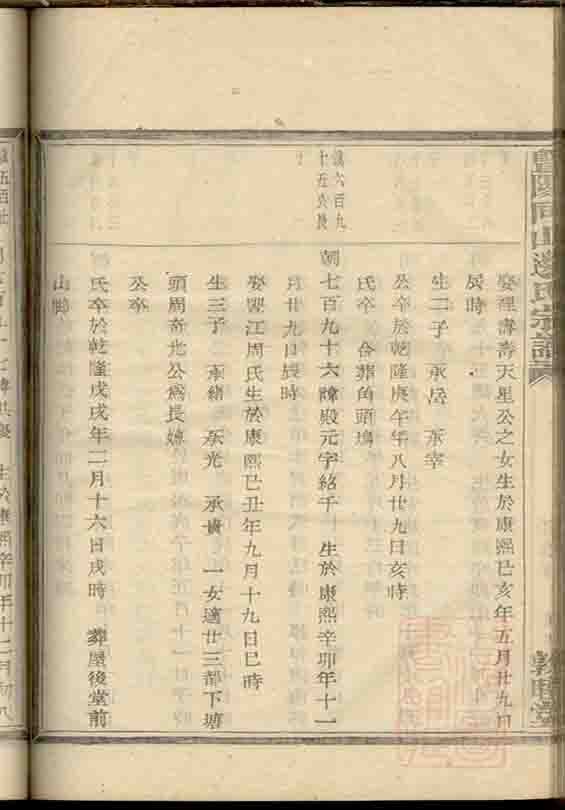 暨陽同山邊氏宗譜
敦睦堂
娶裡壽壽天星公之女生於康熙己亥年五月廿九日
辰時
生二子 承居 承宰
公卒於乾隆庚午年八月廿九日亥時
氏卒 合葬角頭塢
朝七百九十六諱殿元字絡千 生於康熙辛卯年十一
月廿九日辰時
娶江周氏生於康熙己丑年九月十九日巳時
生三子 承緒 承光 承貴 一女適廿三都下塘
頭周奇光公為長媳
公卒
氏卒於乾隆戊戌年二月十六日戌時 葬屋後堂前
山
六百九
十五公長
生於康熙辛卯年十二月初八